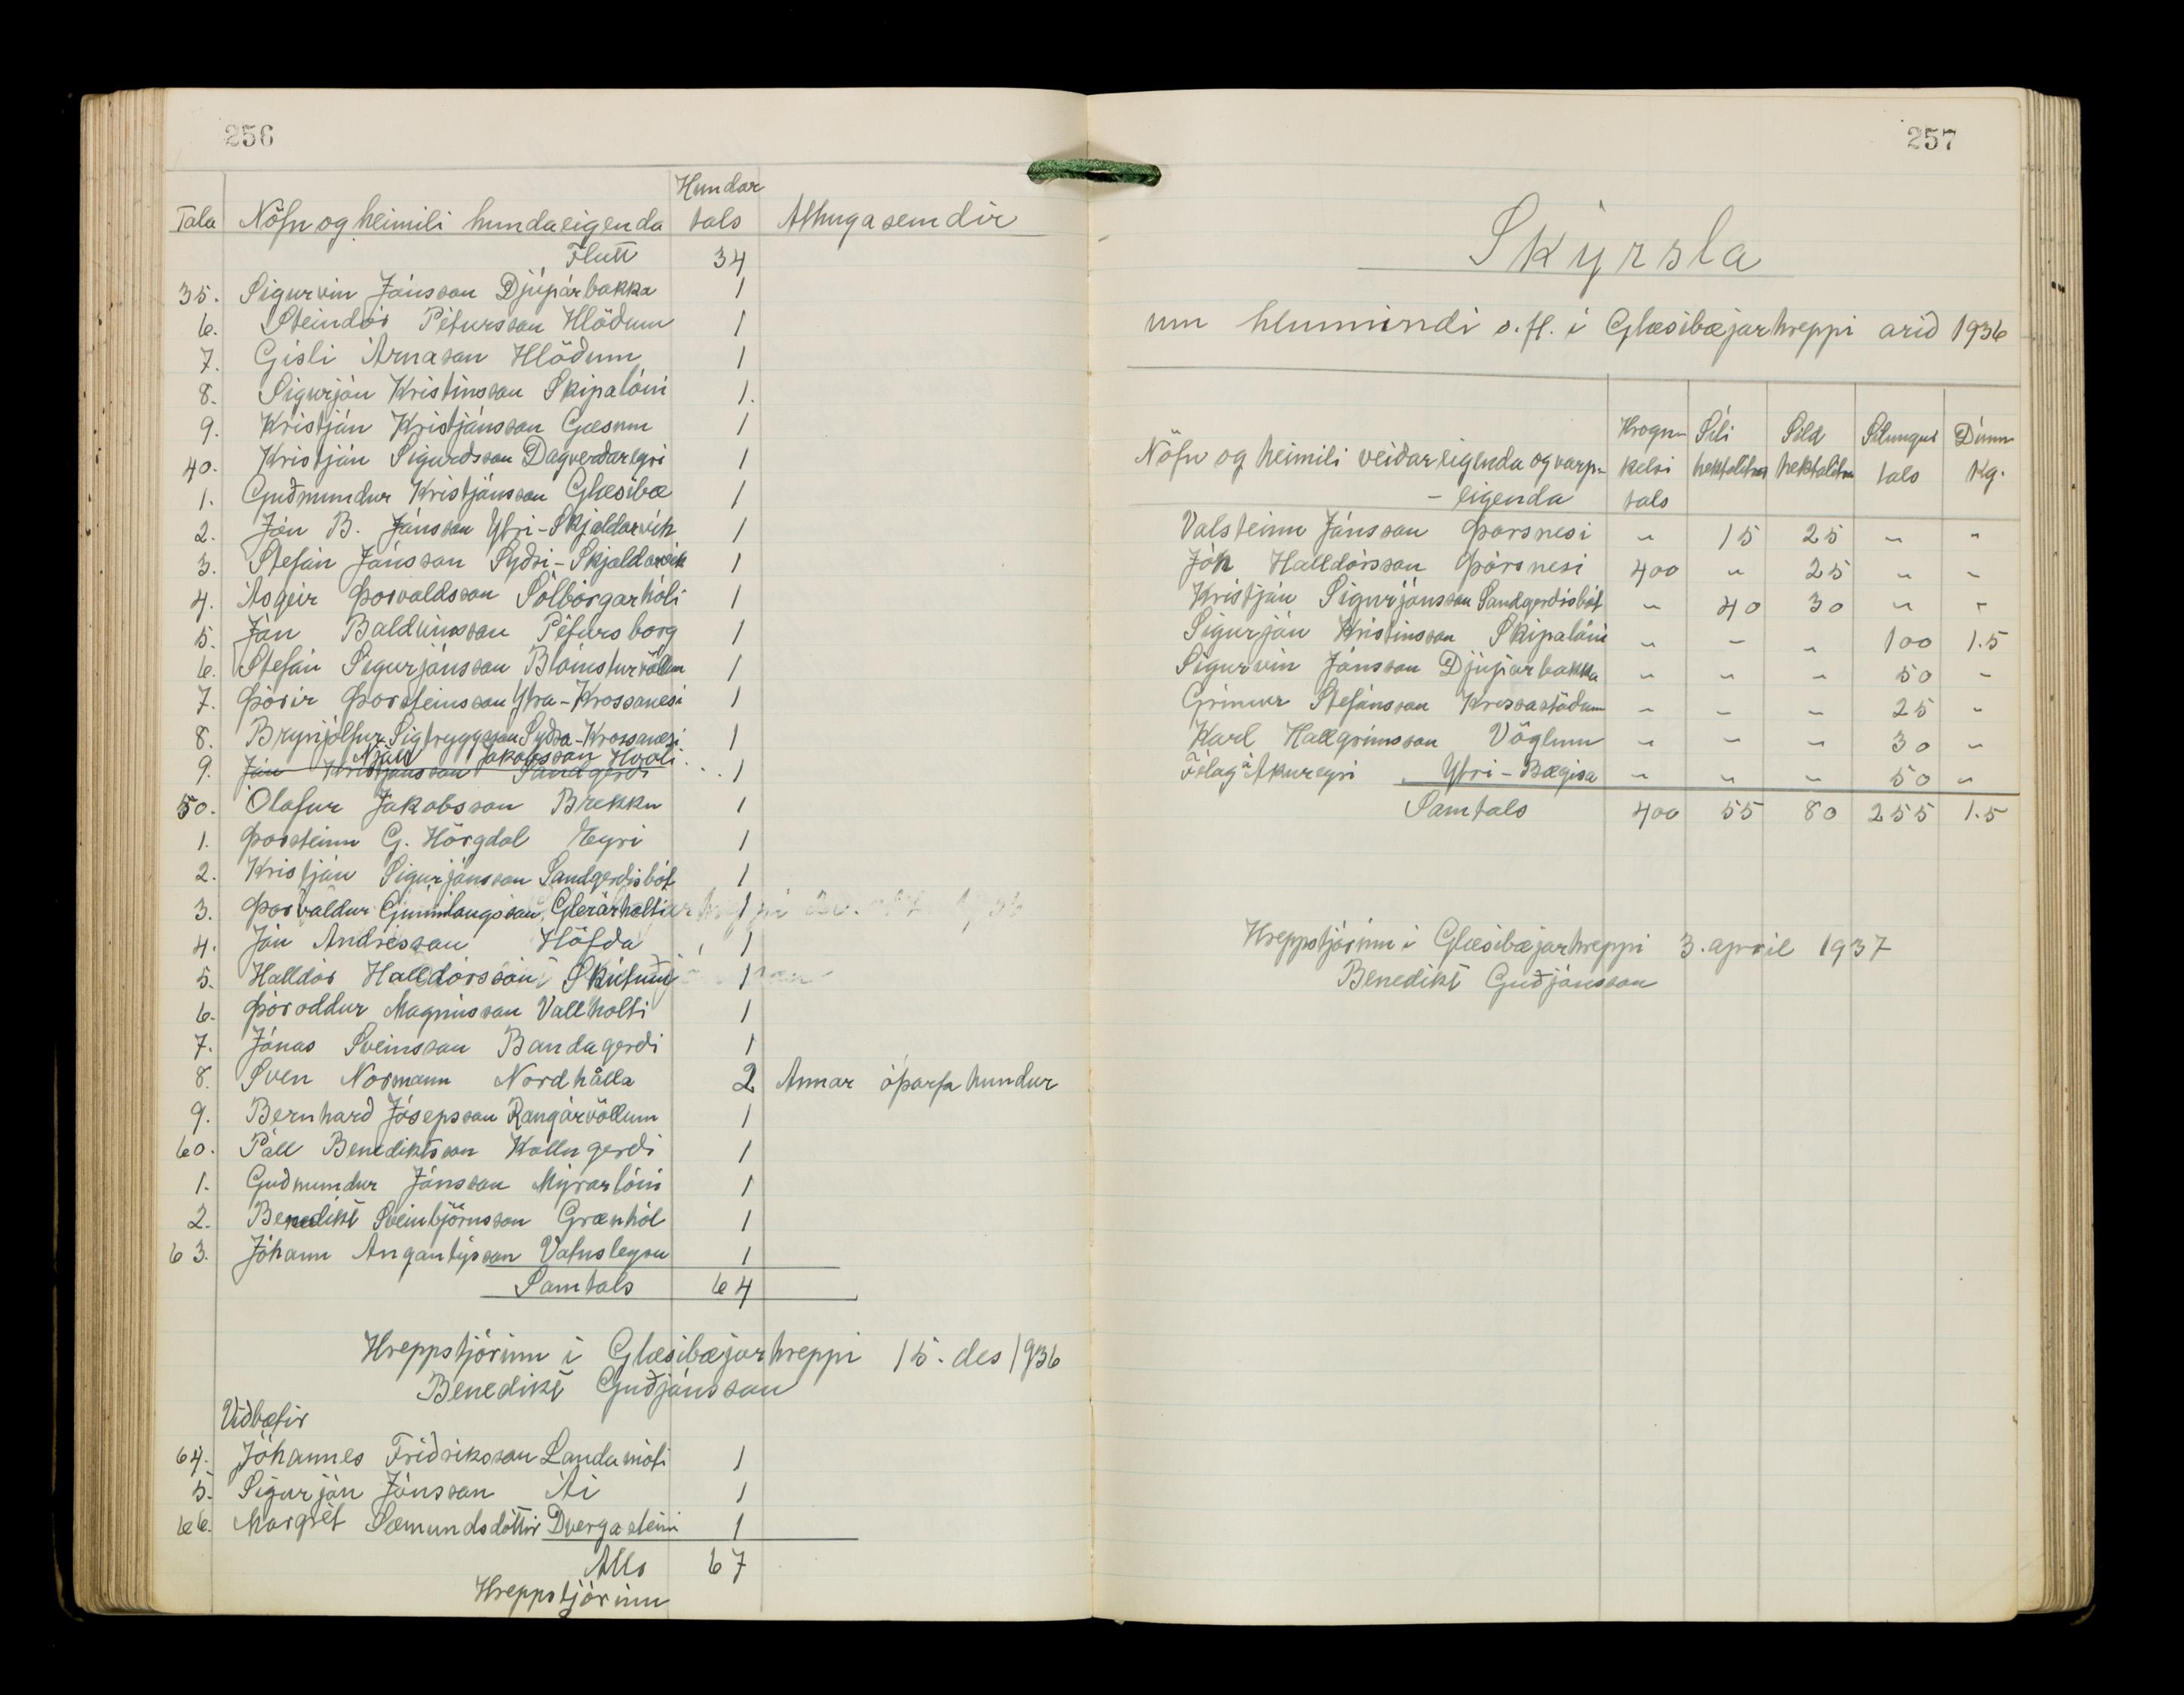 256
Hundar
Tala Nöfn og heimili hundaeigenda tals Athugasemdir
Flutt 34
35. Sigurvin Jónsson Djúpárbakka 1
6. Steindór Pétursson Hlöðum 1
7. Gísli Árnason Hlöðum 1
8. Sigurjón Kristinsson Skipalóni 1.
9. Kristján Kristjánsson Gæsum 1
40. Kristján Sigurðsson Dagverðareyri 1
1. Guðmundur Kristjánsson Glæsibæ 1
2. Jón B. Jónsson Ytri-Skjaldarvík 1
3. Stefán Jónsson Syðri-Skjaldarvík 1
4. Ásgeir Þorvaldsson Sólborgarhóli 1
5. Jón Baldvinsson Pétursborg 1
6. Stefán Sigurjónsson Blómsturvöllum 1
7. Þórir Þorsteinsson Ytra-Krossanesi 1
8. Brynjólfur Sigtryggsson Syðra-Krossanesi 1
Njáll Jakobsson Hvoli
9. Jón Kristjánsson Sandgerði 1
50. Ólafur Jakobsson Brekku 1
1. Þorsteinn G. Hörgdal Eyri 1
2. Kristján Sigurjónsson Sandgerðisbót 1
3. Þorvaldur Gunnlaugsson Glerárholti 1
4. Jón Andrésson Höfða 1
5. Halldór Halldórsson Skútum 1
6. Þóroddur Magnússon Vallholti 1
7. Jónas Sveinsson Bandagerði 1
8. Sven Normann Nordhålla 2 Annar óþarfa hundur
9. Bernhard Jósepsson Rangárvöllum 1
60. Páll Benediktsson Kollugerði 1
1. Guðmundur Jónsson Mýrarlóni 1
2. Benedikt Sveinbjörnsson Grænhól 1
63. Jóhann Angantýsson Vatnsleysu 1
Samtals 64
Hreppstjórinn í Glæsibæjarhreppi 15. des 1936
Benedikt Guðjónsson
Viðbætir
64. Jóhannes Friðriksson Landamóti 1
5. Sigurjón Jónsson Ási 1
66. Margrét Sæmundsdóttir Dvergasteini 1
Alls 67
Hreppstjórinn
257
Skýrsla
um hlunnindi o.fl. í Glæsibæjarhreppi árið 1936
Nöfn og heimili veiðareigenda og varp-
-eigenda
Hrogn-
kelsi
tals
Síli
hektolitrar
Síld
hektolitrar
Silungur
tals
Dúnn
Kg.
Valsteinn Jónsson Þórsnesi " 15 25 " "
Jón Halldórsson Þórsnesi 400 " 25 " "
Kristján Sigurjónsson Sandgerðisbót " 40 30 " "
Sigurjón Kristinsson Skipalóni " " " 100 1.5
Sigurvin Jónsson Djúpárbakka " " " 50 "
Grímur Stefánsson Krossastöðum " " " 25 "
Karl Hallgrímsson Vöglum " " " 30 "
Félag á Akureyri Ytri-Bægisá " " " 50 "
Samtals 400 55 80 255 1.5
Hreppstjórinn í Glæsibæjarhreppi 3. apríl 1937
Benedikt Guðjónsson